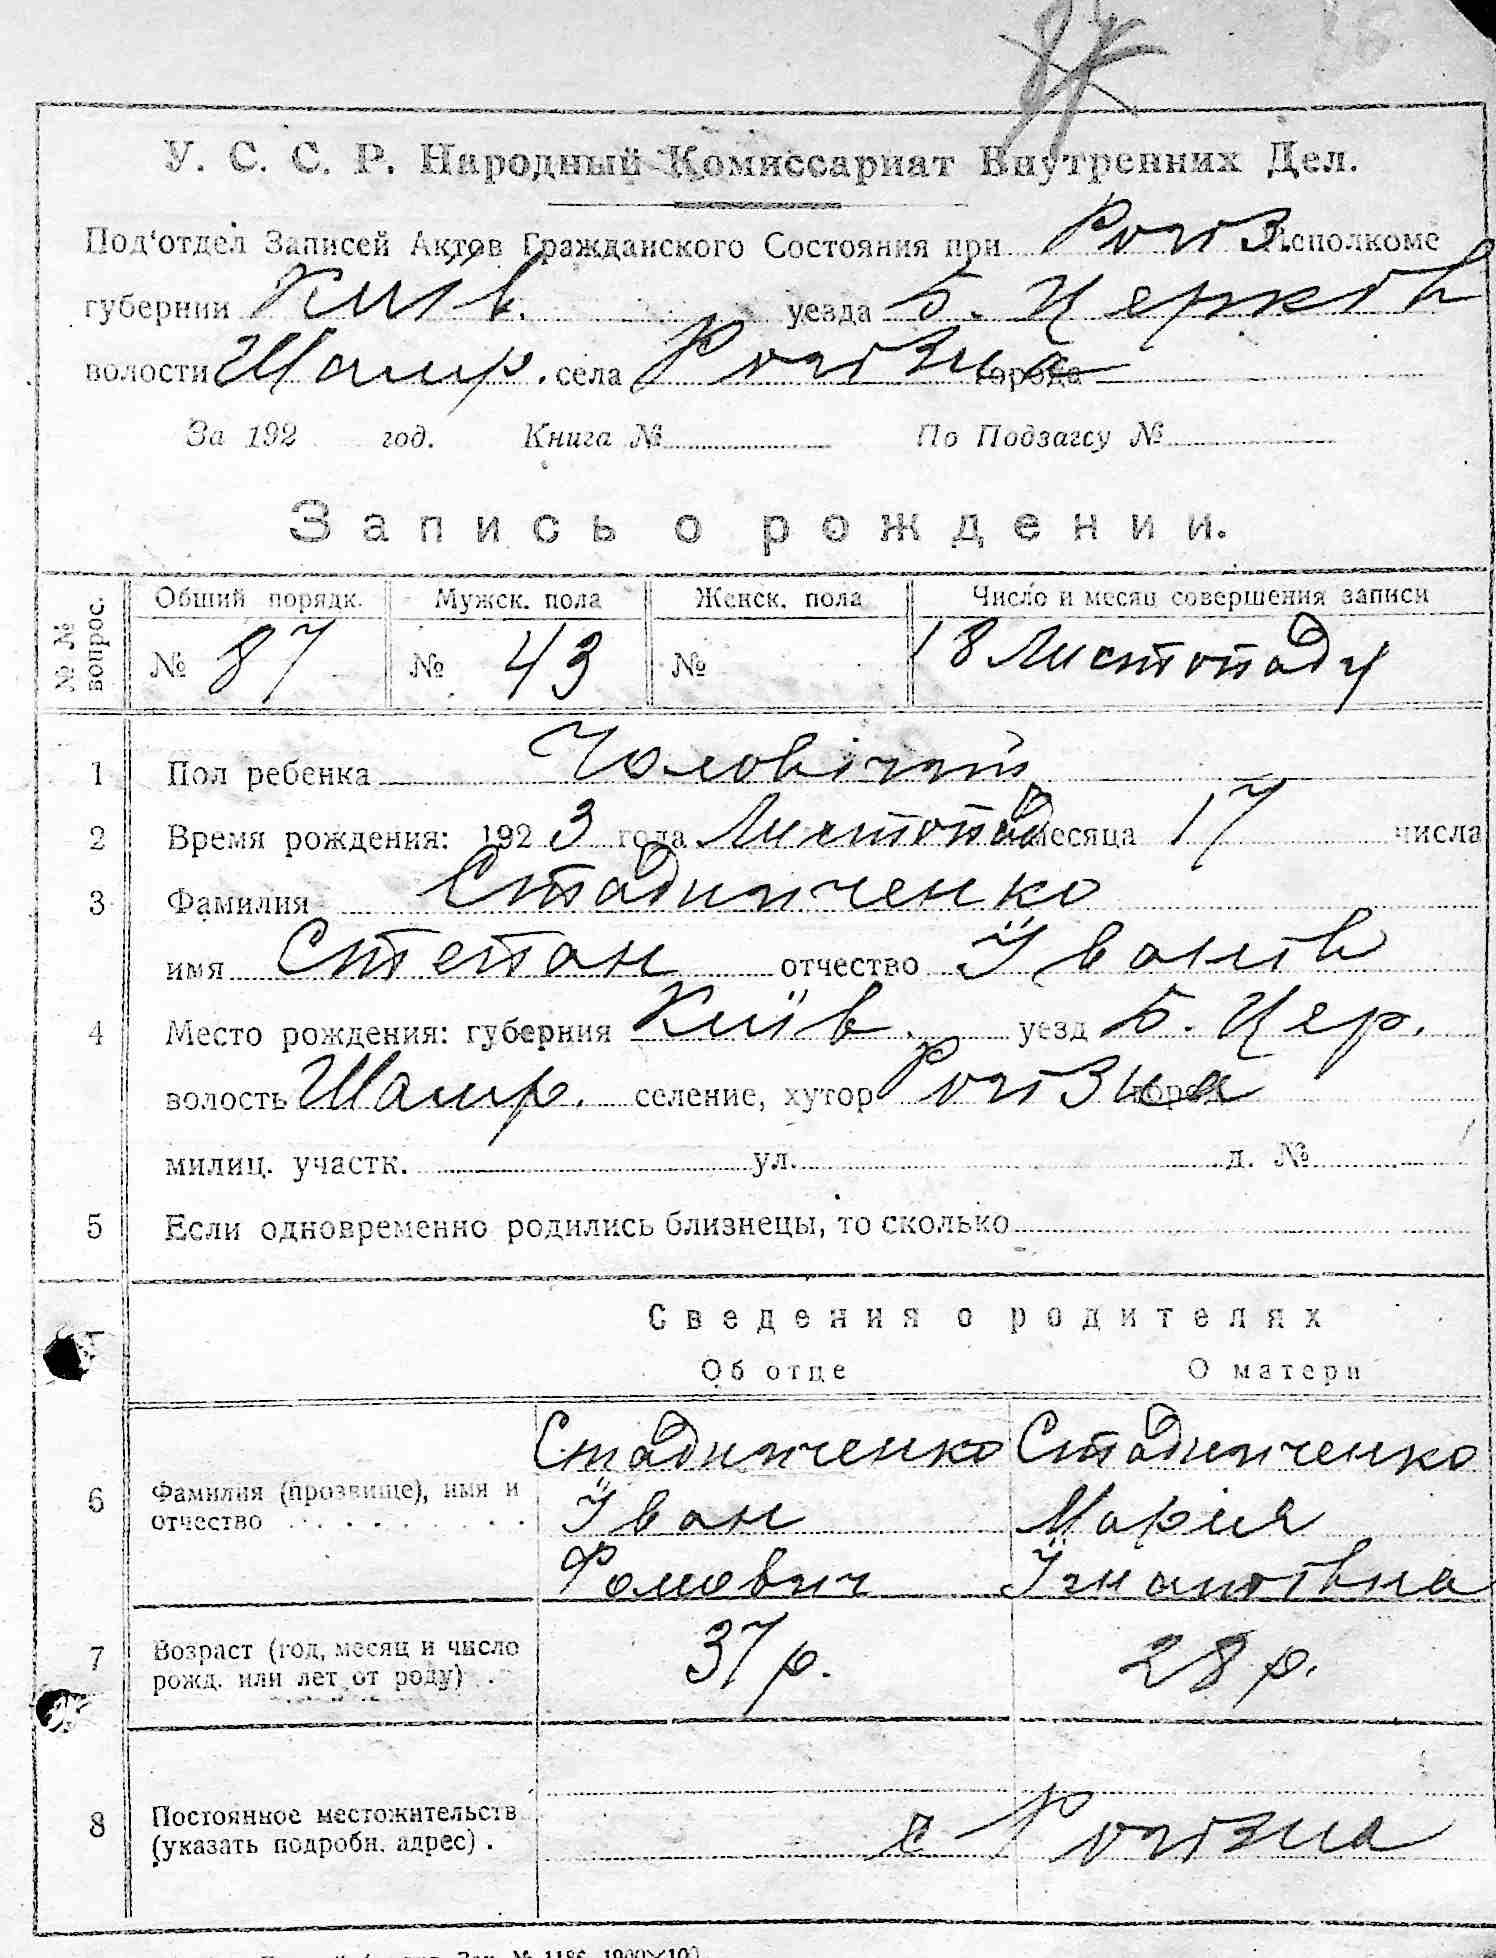 87
36
У. С. С. Р. Народный Комиссариат Внутренних Дел.
Под‘отдел Записей Актов Гражданского Состояния при Рогоз. Исполкоме
губернии Київ. уезда Б. Церків
волости Шамр. села Рогізна города
За 192 год. Книга № По Подзагсу №
Запись о рождении.
№ № вопрос. Общий порядк. Мужск. пола Женск. пола Число и месяц совершения записи
№ 87 № 43 № 18 Листопаду
1 Пол ребенка Чоловічий
2 Время рождения: 1923 года Листопад месяца 17 числа
3 Фамилия Стадниченко
имя Степан отчество Іванів
4 Место рождения: губерния Київ. уезд Б. Цер.
волость Шамр. селение, хутор Рогізна город
милиц. участк. ул. д. №
5 Если одновременно родились близнецы, то сколько
Сведения о родителях
Об отце О матери
6 Фамилия (прозвище), имя и отчество Стадниченко Стадниченко
Іван Мария
Фомович Ігнатівна
7 Возраст (год, месяц и число рожд. или лет от роду) 37 р. 28 р.
8 Постоянное местожительств (указать подробн. адрес) . с Рогізна